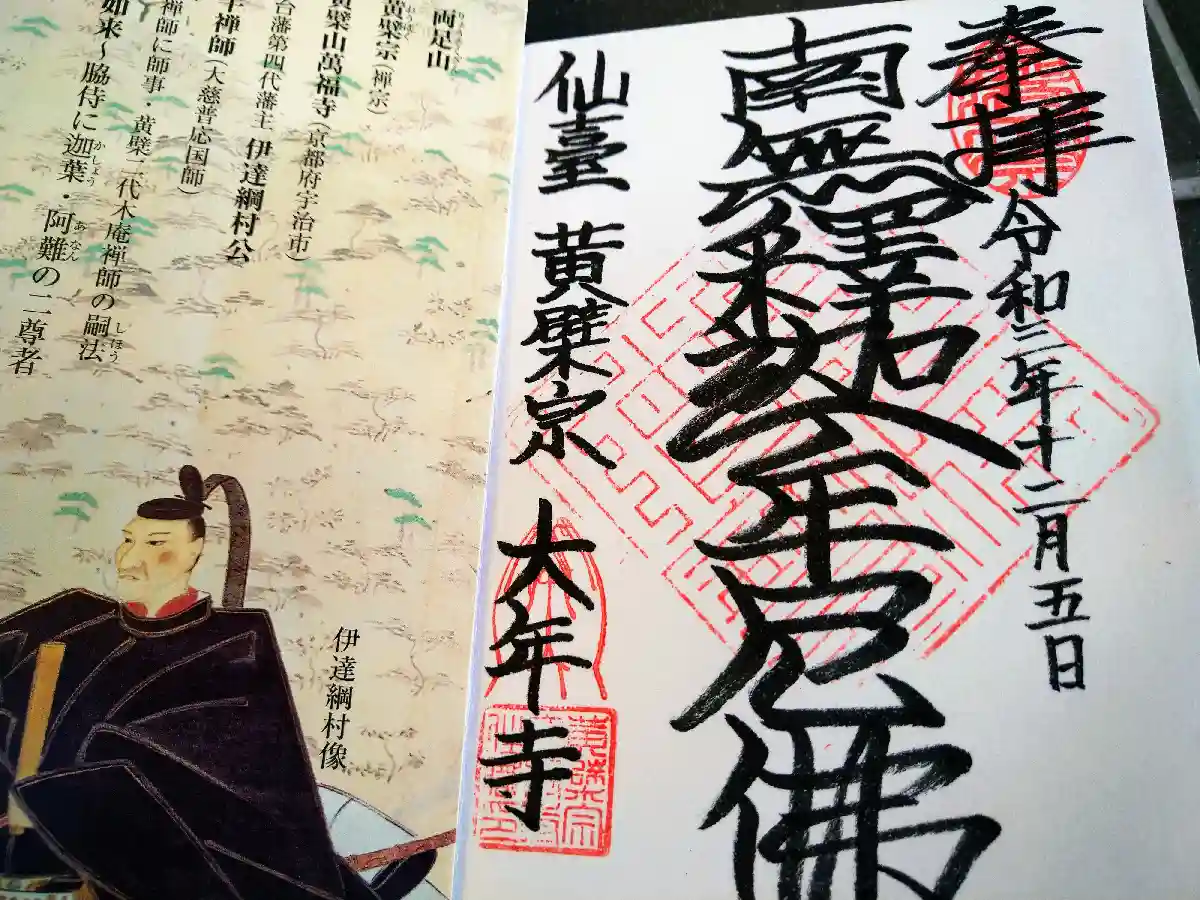 奉拝
令和三年十二月五日
南無釋迦牟尼佛
仙臺 黄檗宗 大年寺
両足山
りょうそくさん
黄檗宗(禅宗)
黄檗山萬福寺(京都府宇治市)
台藩第四代藩主 伊達綱村公
牛禅師(大慈普応国師)
禅師に師事・黄檗二代木庵禅師の嗣法
しほう
如来〜脇侍に迦葉・阿難の二尊者
かしょう
あなん
伊達綱村像